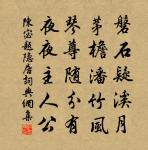 磐石疑溪月
茅檐潘竹風
琴尊随分有
夜夜主人公
陳宓趙隐居詞典網集